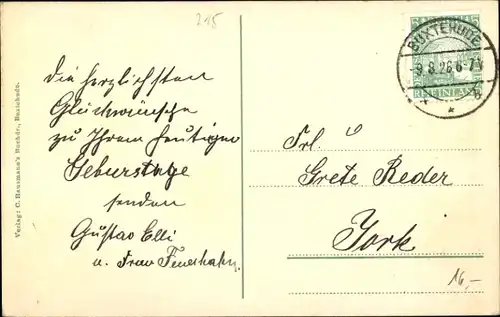 215
Die herzlichsten
Glückwünsche
zu Ihrem heutigen
Geburtstage
senden
Gustav Elli
u. Frau
Verlag: C. Hansmann's Buchdr., Buxtehude.
BUXTEHUDE
-9.8.26 6-7
RHEINLAND
Frl.
Grete Reder
York
16,-